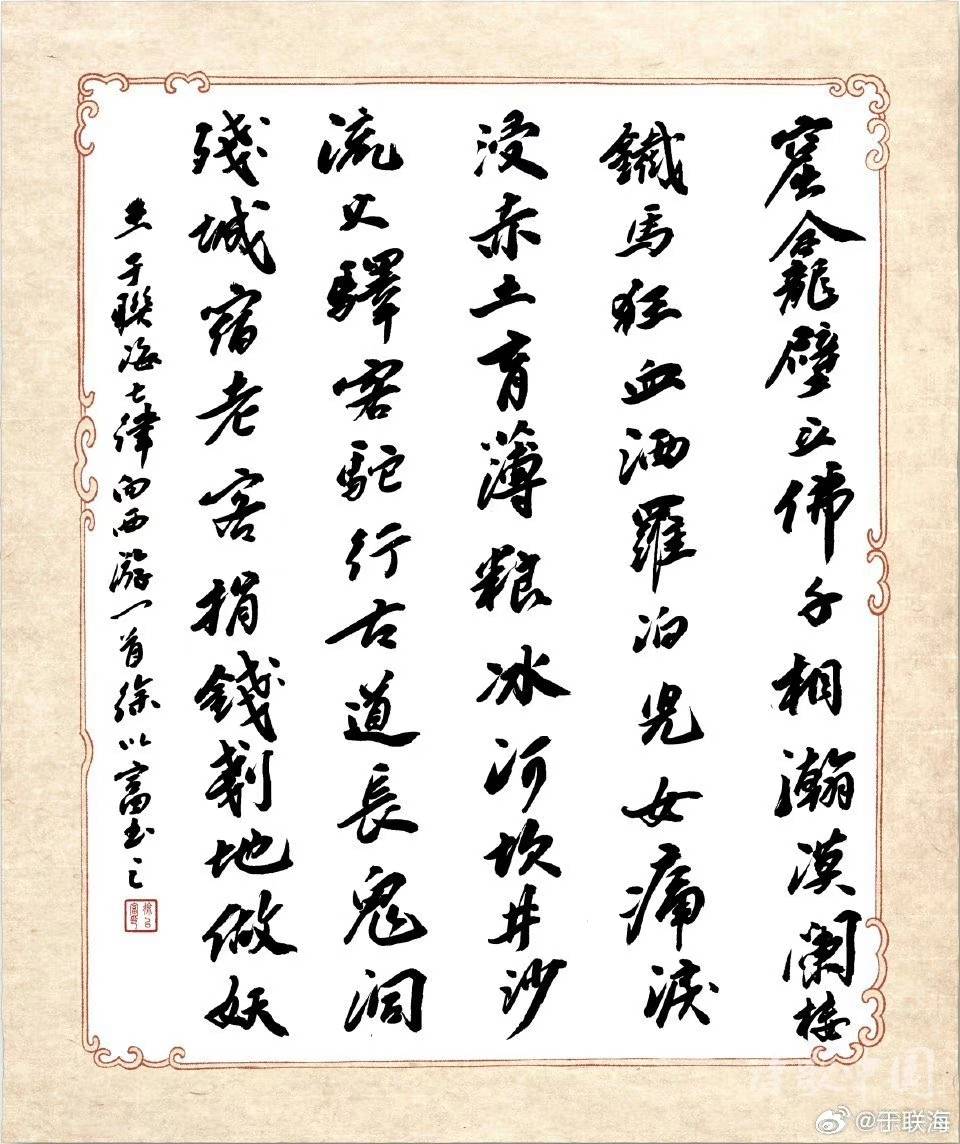 窟龕壁立佛千相瀚漠闌楼
鐵馬狂血洒羅泊兒女痛淚
浸赤土育薄粮冰河坎井沙
流火驛客駝行古道長鬼洞
殘城宿老客捐錢剗地做妖
录于聯海七律向西游一首徐以富书之
@于联海